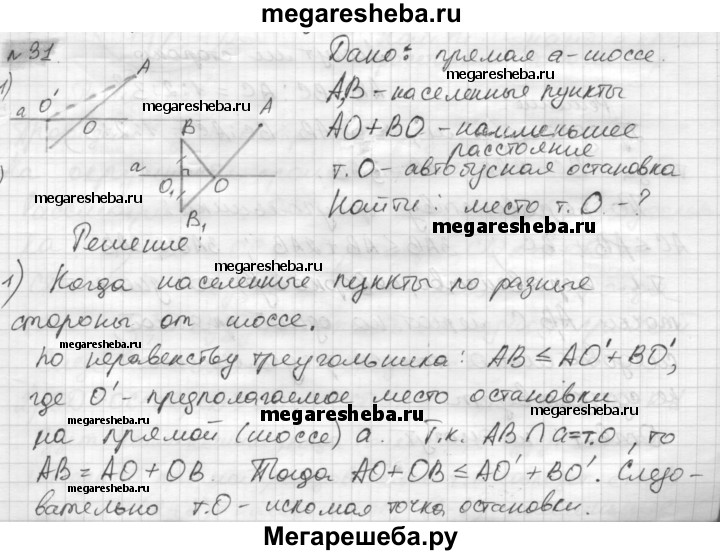 megaresheba.ru
№31
Дано: прямая a-шоссе.
1)
A
O'
a
O
A,B - населенные пункты
AO+BO - наименьшее
расстояние
B
A
a
O₁
O
B₁
т. O - автобусная остановка
Найти: место т. O - ?
Решение:
1) Когда населенные пункты по разные
стороны от шоссе.
По неравенству треугольника: AB ≤ AO' + BO',
где O' - предполагаемое место остановки
на прямой (шоссе) a. Т.к. AB ∩ a = т.O, то
AB = AO + OB. Тогда AO + OB ≤ AO' + BO'. Следо-
вательно т. O - искомая точка остановки.
megaresheba.ru
megaresheba.ru
megaresheba.ru
megaresheba.ru
megaresheba.ru
megaresheba.ru
megaresheba.ru
megaresheba.ru
megaresheba.ru
megaresheba.ru
megaresheba.ru
Мегарешеба.ру